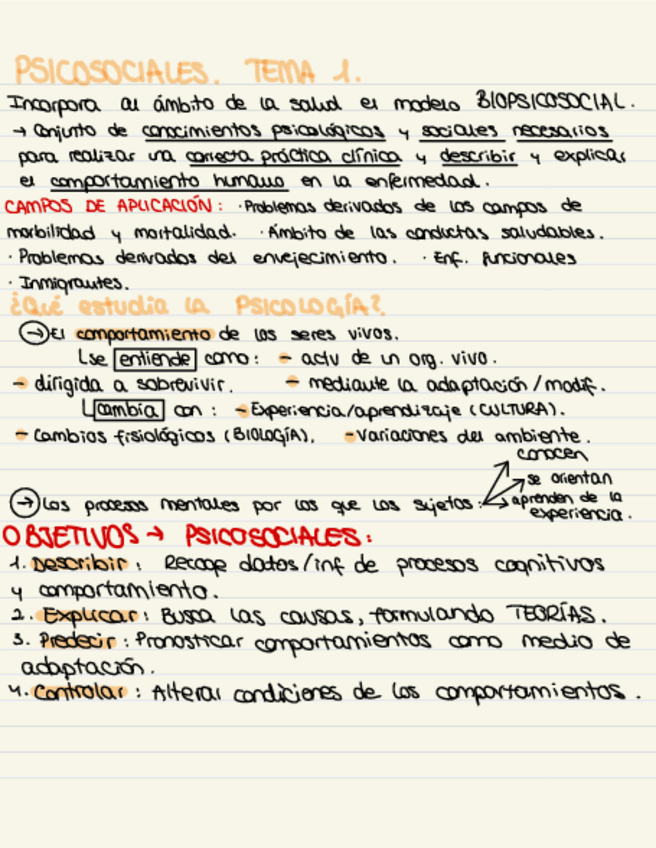 PSICOSOCIALES. TEMA 1.
Incorpora al ámbito de la salud el modelo BIOPSICOSOCIAL.
→ Conjunto de conocimientos psicológicos y sociales necesarios
para realizar una correcta práctica clínica y describir y explicar
el comportamiento humano en la enfermedad.
CAMPOS DE APLICACIÓN: · Problemas derivados de los campos de
morbilidad y mortalidad. · Ámbito de las conductas saludables.
· Problemas derivados del envejecimiento. · Enf. funcionales
· Inmigrantes.
¿Qué estudia la PSICOLOGÍA?
→ El comportamiento de los seres vivos.
se entiende como: - actv de un org. vivo.
- dirigida a sobrevivir. - mediante la adaptación/modif.
cambia con: - Experiencia/aprendizaje (CULTURA).
- Cambios fisiológicos (BIOLOGÍA). - Variaciones del ambiente.
conocen
se orientan
→ Los procesos mentales por los que los sujetos: aprenden de la
experiencia.
OBJETIVOS → PSICOSOCIALES:
1. Describir: Recoge datos/inf de procesos cognitivos
y comportamiento.
2. Explicar: Busca las causas, formulando TEORÍAS.
3. Predecir: Pronosticar comportamientos como medio de
adaptación.
4. Controlar: Alterar condiciones de los comportamientos.